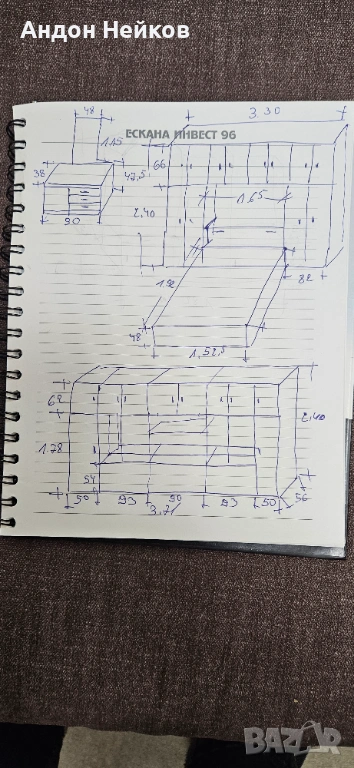 Андон Нейков
ЕСКАНА ИНВЕСТ 96
48
3 30
115
66
38
47,5
90
2,40
1,65
82
48
1,52,5
62
2,40
1.78
54
50 93 50 93 50
3,71
56
BAZAR